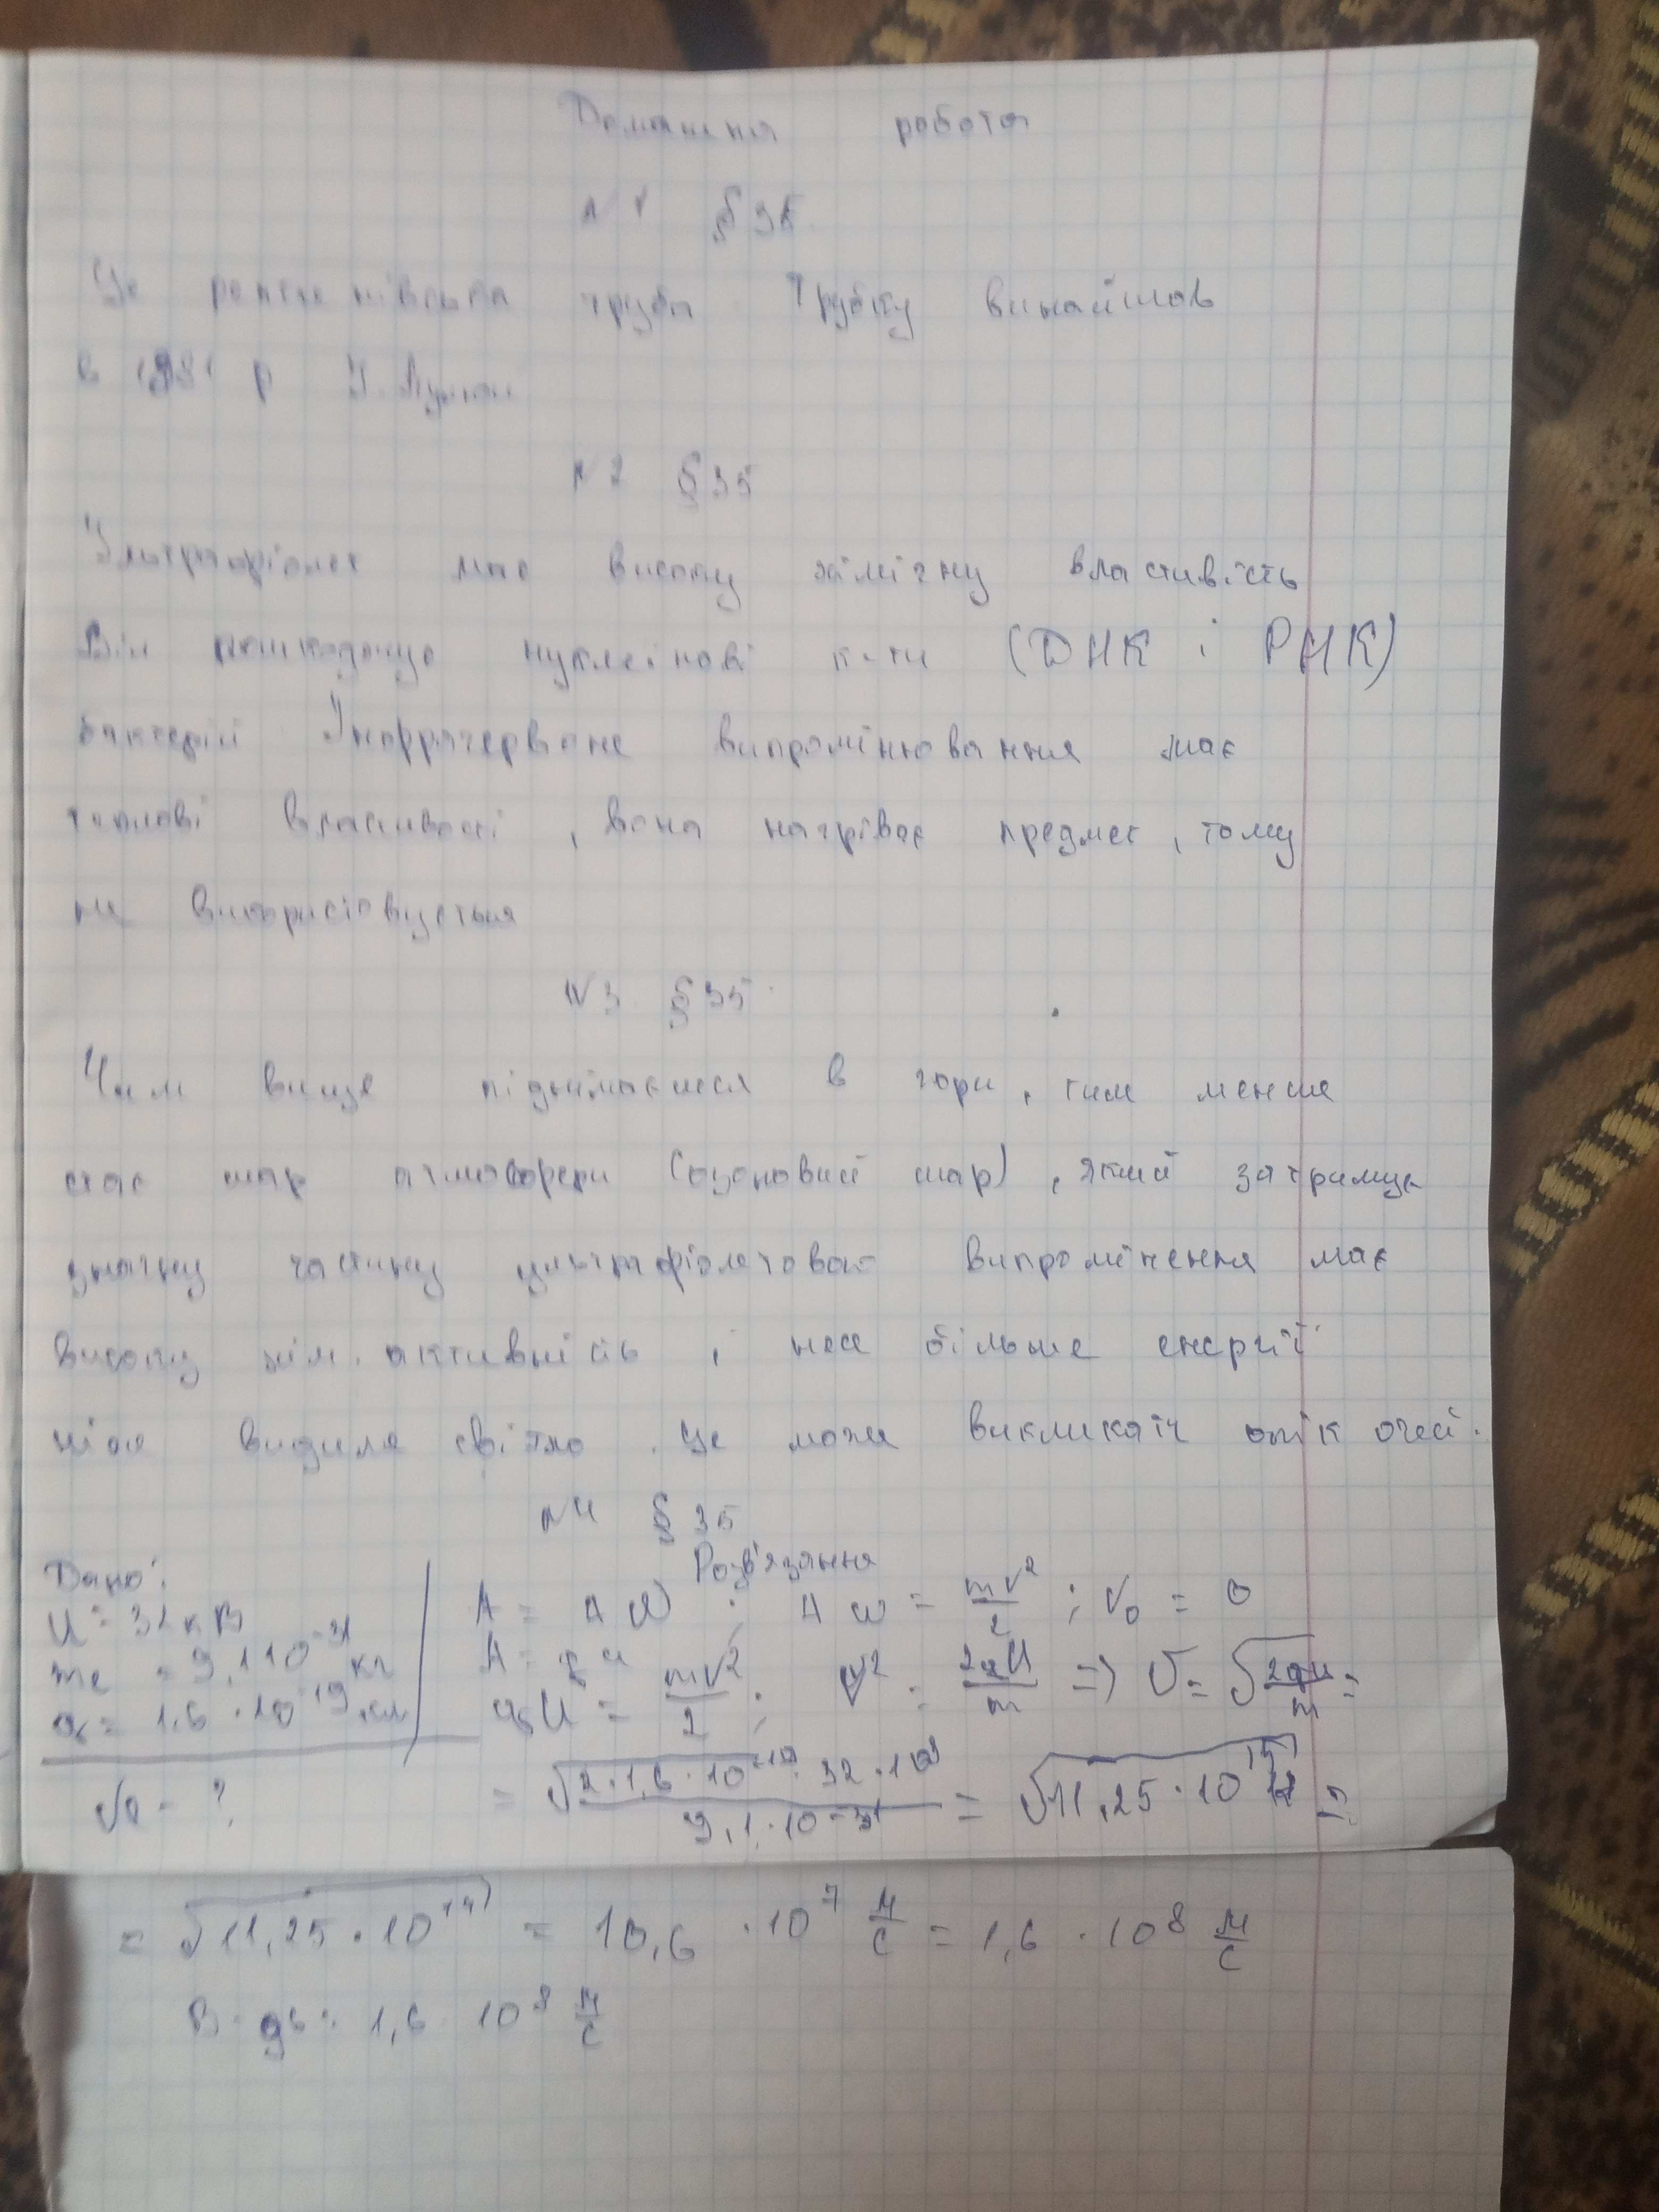 Домашня робота
№1 § 35
Це рентгенівська труба Трубку винайшов
в 1881 р І. Пулюй
№2 § 35
Ультрафіолет має високу хімічну властивість
Він пошкоджує нуклеїнові к-ти (ДНК і РНК)
бактерій Інфрачервоне випромінювання має
теплові властивості, вона нагріває предмет, тому
не використовується
№3 § 35
Чим вище піднімаємося в гори, тим менше
стає шар атмосфери (озоновий шар), який затримує
значну частину ультрафіолетове випромінення має
високу хім. активність, і несе більше енергії
ніж видиме світло. Це може викликати опік очей.
№4 § 35
Дано: Розв'язання
U = 32 кВ A = Δ W ; Δ W = mv²/2 ; v₀ = 0
me = 9,1 10⁻³¹ кг A = qU
q = 1,6 · 10⁻¹⁹ Кл qU = mv²/2 ; v² = 2qU/m => v = √(2qU/m) =
v - ? = √(2·1,6·10⁻¹⁹·32·10³/9,1·10⁻³¹) = √(11,25·10¹⁵) =
= √(11,25·10¹⁴) = 10,6 · 10⁷ м/с = 1,6 · 10⁸ м/с
В-дь: 1,6 · 10⁸ м/с